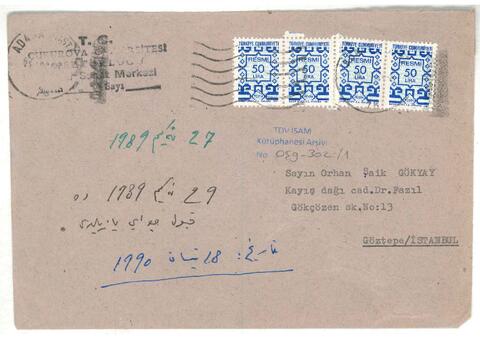 T. C.
ÇUKUROVA
Sanat Merkezi
Sayı
TÜRKİYE CUMHURİYETİ
RESMİ
50
LİRA
TÜRKİYE CUMHURİYETİ
RESMİ
50
LİRA
TÜRKİYE CUMHURİYETİ
RESMİ
50
LİRA
TÜRKİYE CUMHURİYETİ
RESMİ
50
LİRA
TDV İSAM
Kütüphanesi Arşivi
No 059-302/1
Sayın Orhan Şaik GÖKYAY
Kayış dağı cad.Dr.Fazıl
Gökçözen sk.No:13
Göztepe/İSTANBUL
27 1989
29 1989 ده
جوابى يازيلدى
تاريخ: 18 نيسان 1990